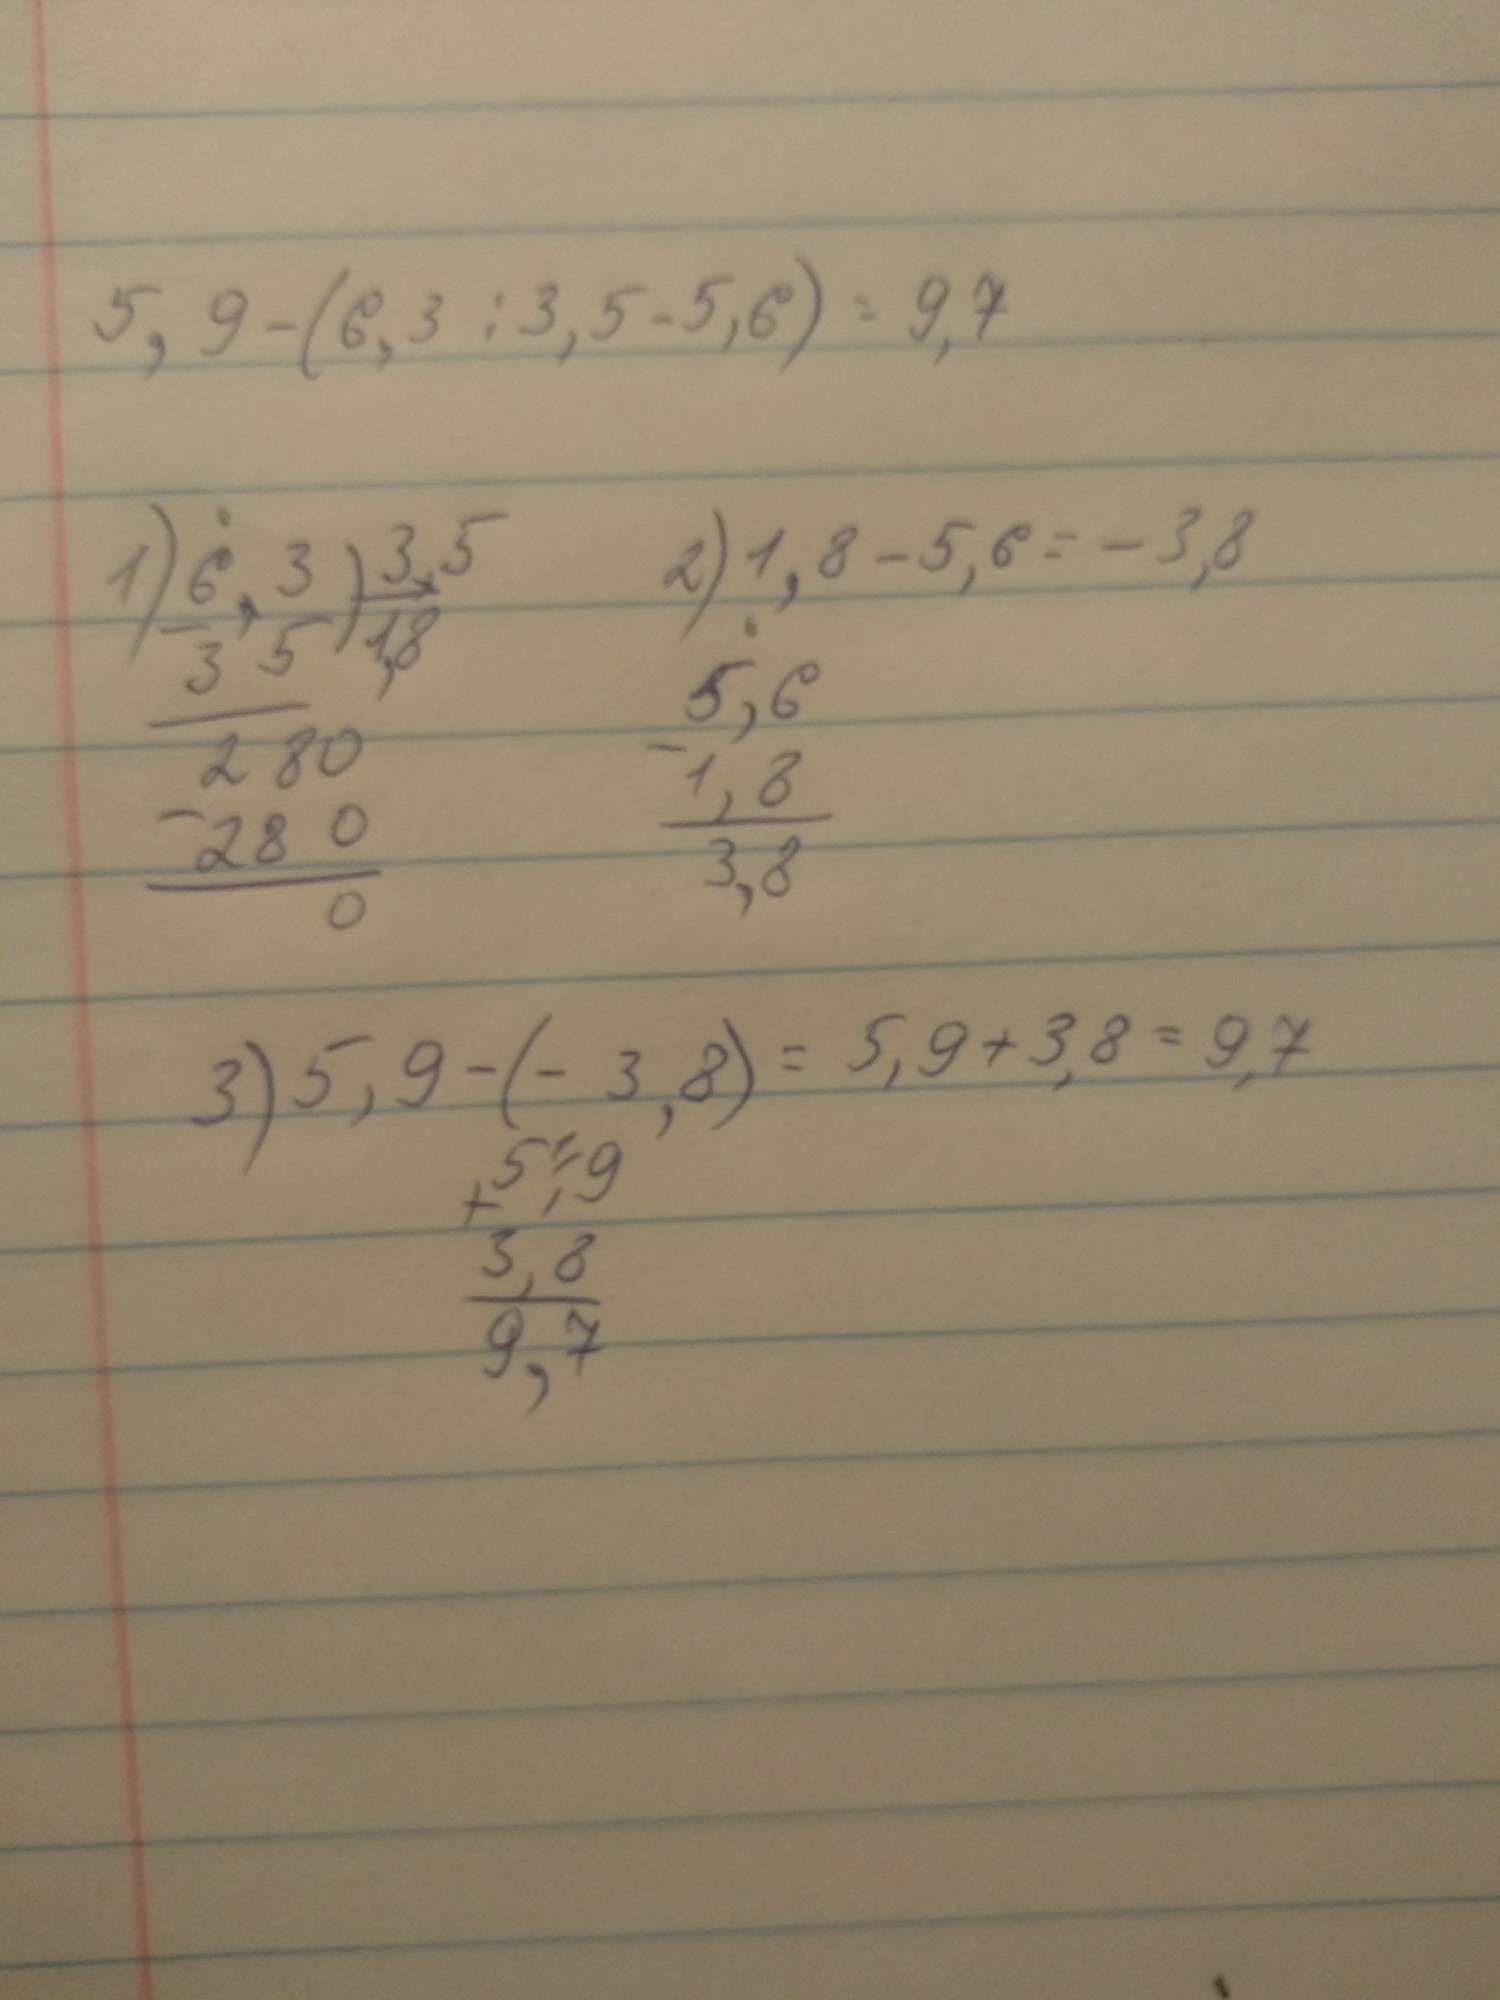 5,9-(6,3:3,5-5,6)=9,7
1) 6,3 3,5
- 35 1,8
280
- 280
0
2) 1,8-5,6=-3,8
5,6
- 1,8
3,8
3) 5,9-(-3,8)=5,9+3,8=9,7
1
+ 5,9
3,8
9,7